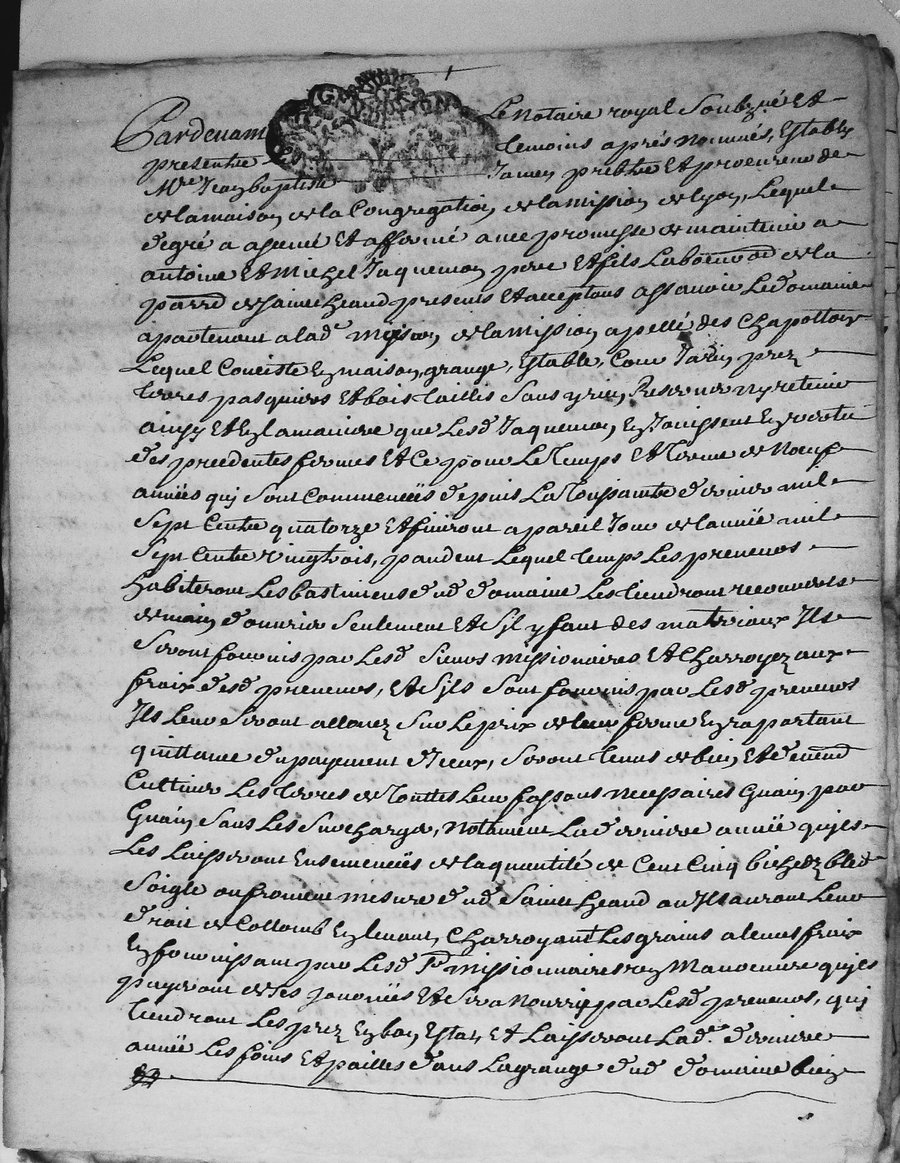 Pardevant Le Notaire royal Soubzné Et
temoins aprés nommés, Estably
presentre
Mre Jean baptiste Jamen prebtre Et procureur de
de la maison de la Congregation de la mission de Lyon, Lequel
degré a assencé Et affermé avec promesse de maintenir a
antoine Et Michel Jaquemon pere Et fils Laboureurs de la
parre de Saint heand presents Et acceptans assavoir Le Domaine
apartenant a lad. maison de la mission apellé des Chapottons
Lequel Conciste En maison, grange, Estable, Cour Jardin, prez
terres pasquiers Et bois taillis Sans y rien Reserver ny retenir
ainsy Et En la maniere que Lesd Jaquemon En Jouissent En vertu
des precedentes fermes Et Ce pour Le Temps Et terme de Noeuf
années quj Sont Commencées depuis La Toussaintz derniere mil
Sept Centz quatorze Et finiront a pareil Jour de l'année mil
Sept Centz Vingt trois, pandent Lequel temps Les preneurs
habiteront Les bastiments dud domaine Les tiendront recouverts
de main d'ouvrier Seulement Et Sil y faut des materiaux Ils
Seront fournis par Lesd Sieurs missionaires Et Charroyez aux
fraix desd preneurs, Et Sils Sont fournis par Lesd preneurs
Ils Leur Seront allouez Sur Le prix de leur ferme En raportant
quittance du payement d'iceux, Seront tenus de bien Et deuemd
Cultiver Les terres de Touttes Leur fassons necessaires Guain par
Guain Sans Les Surcharger, Notament La derniere année qu'jls
Les Laisseront Ensemencées de la quantité de Cent Cinq bichedz bled
Soigle ou froment mesure dud Saint heand ou Ils auront Leur
droit de Collomb En levant, Charroyant Les grains a leurs fraix
En fournissant par Lesd Srs missionnaires un Manoeuvre qu'jls
payeront de Ses journées Et Sera Nourry par Lesd preneurs, quj
tiendront Les prez En bon Estat, Et Laisseront Lad. derniere
année Les foins Et pailles dans La grange dud domaine bien